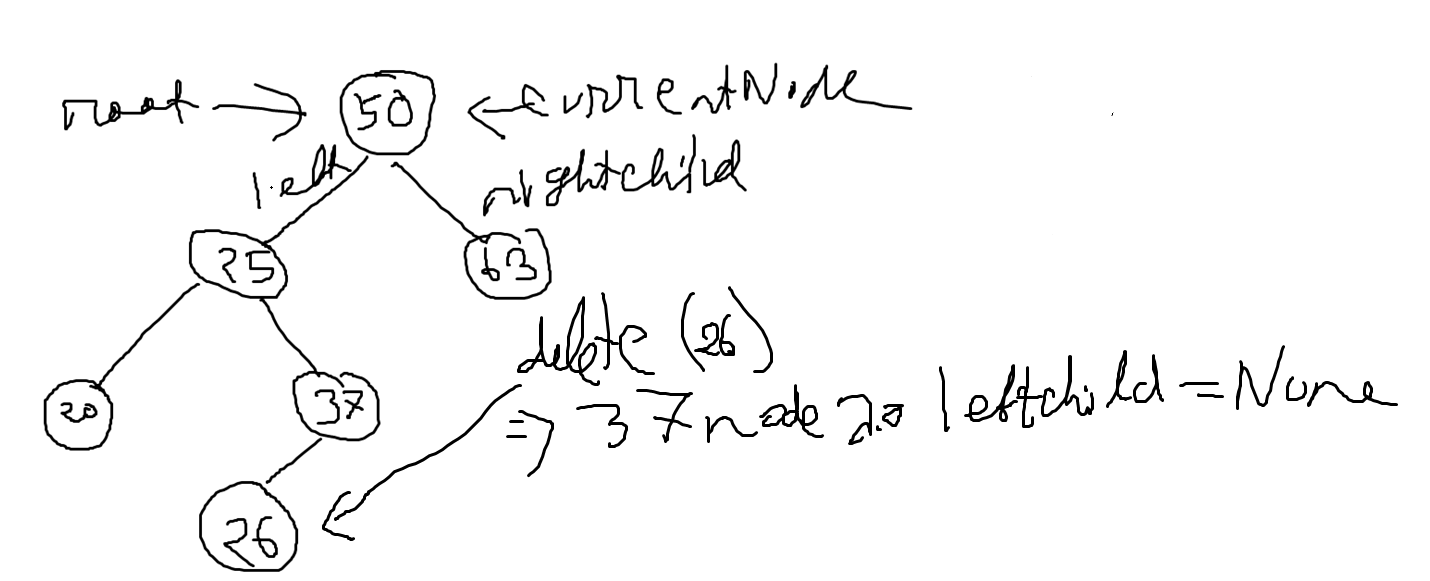 root → 50 ← currentNode
left rightchild
25 63
delete (26)
20 37 ⇒ 37 node leftchild = None
26